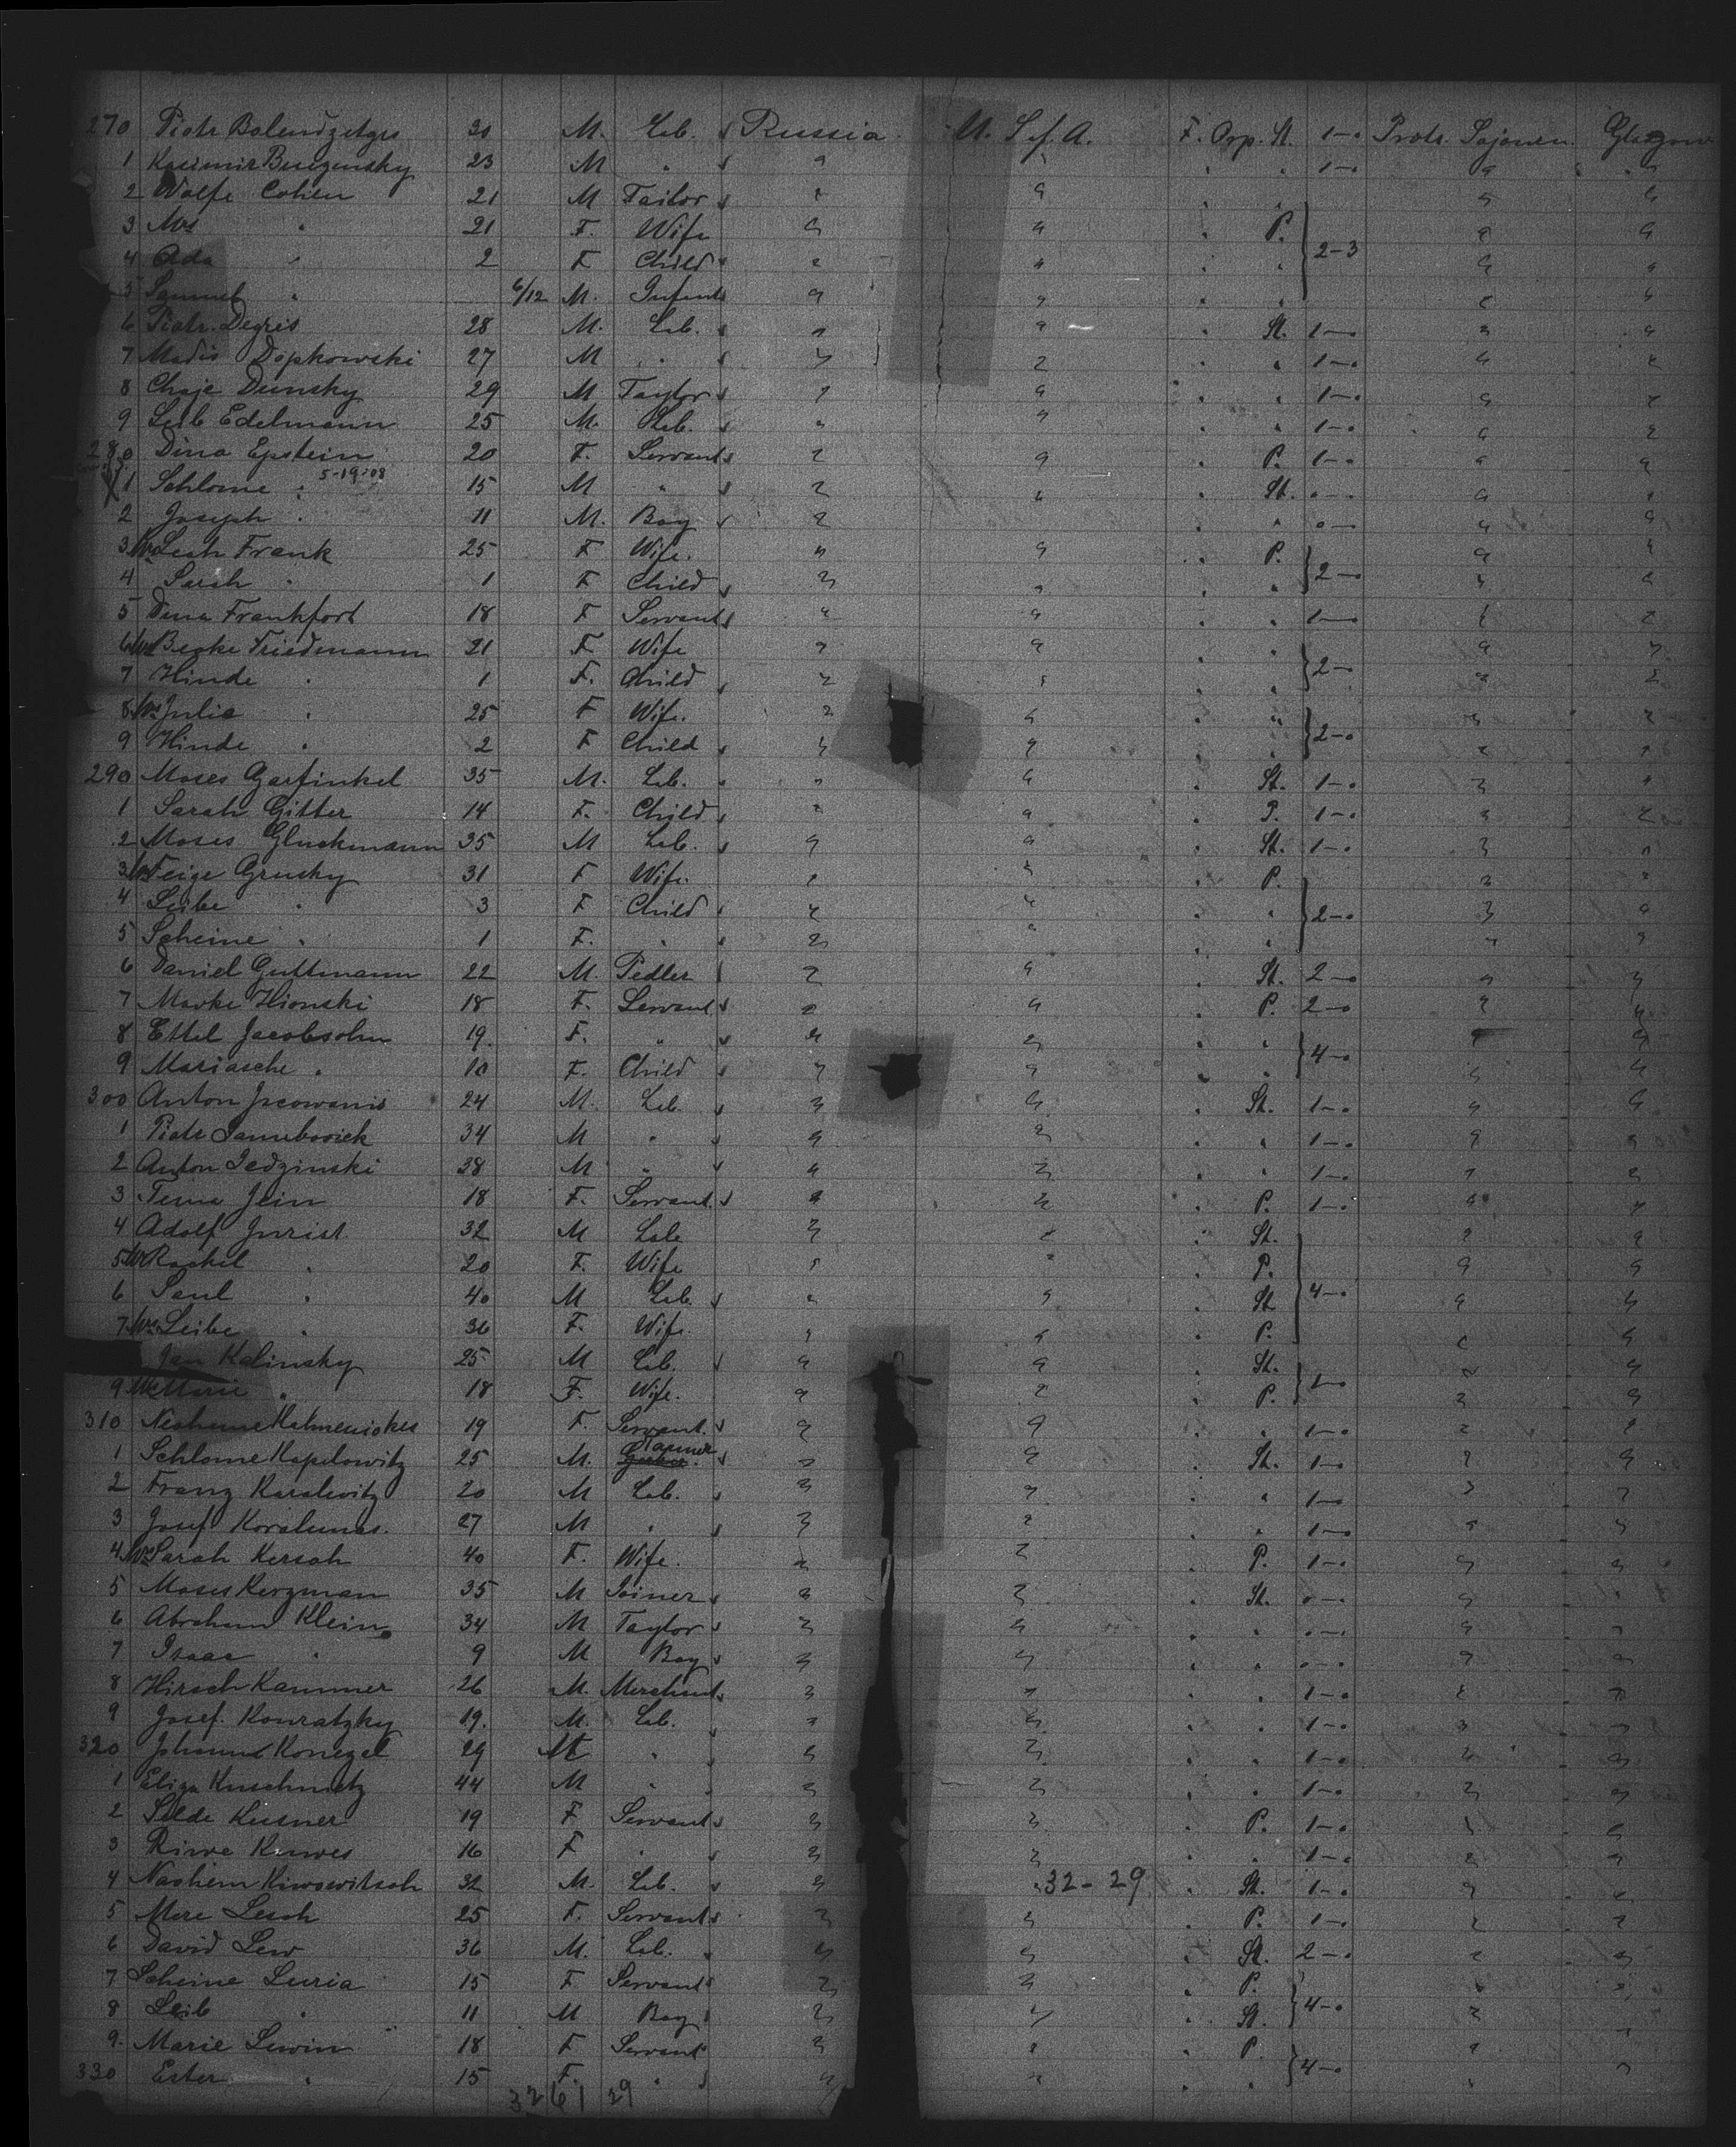 270 Piotr Bolendzetgis 30 M. Lab. Russia U. S. of A. F. Orp. St. 1-0 Protr. Sojourn. Glasgow
1 Kasimir 23 M " " " 1-0 " "
2 Wolfe Cohen 21 M Tailor " " " "
3 Mrs " 21 F. Wife " " P. 2-3 " "
4 Ada " 2 F Child " " " " "
5 Samuel " 6/12 M. Infant " " " " "
6 Piotr. Degris 28 M. Lab. " " St. 1-0 " "
7 Madis Dopkowski 27 M " " " " 1-0 " "
8 Chaje Dunsky 29 M Taylor " " " 1-0 " "
9 Leib Edelmann 25 M. Lab. " " " 1-0 " "
280 Dina Epstein 20 F. Servant " " P. 1-0 " "
X 1 Schlome " 5-19-08 15 M " " " St. 0-0 " "
2 Joseph " 11 M. Boy " " " 0-0 " "
3 Mrs Leah Frank 25 F Wife. " " P. 2-0 " "
4 Sarah " 1 F Child " " " " "
5 Dina Frankfort 18 F Servant " " " 1-0 " "
6 Mrs Beske Friedmann 21 F Wife " " " 2-0 " "
7 Hinde " 1 F. Child " " " " "
8 Mrs Julia " 25 F Wife. " " " 2-0 " "
9 Hinde " 2 F Child " " " " "
290 Moses Garfinkel 35 M. Lab. " " St. 1-0 " "
1 Sarah Gitter 14 F. Child " " P. 1-0 " "
2 Moses Gluckmann 35 M Lab. " " St. 1-0 " "
3 Mrs Feige Grusky 31 F Wife. " " P. 2-0 " "
4 Leibe " 3 F Child " " " " "
5 Scheine " 1 F. " " " " " "
6 Daniel Guttmann 22 M. Pedler " " St. 2-0 " "
7 Mavke Hionski 18 F. Servant " " P. 2-0 " "
8 Ettel Jacobsohn 19. F. " " " " 4-0 " "
9 Mariasche " 10 F. Child " " " " "
300 Anton 24 M. Lab. " " St. 1-0 " "
1 Piotr 34 M " " " " 1-0 " "
2 Anton Jedzinski 38 M " " " " 1-0 " "
3 Tema Jein 18 F. Servant. " " P. 1-0 " "
4 Adolf Jurist 32 M Lab. " " St. " "
5 Mrs Rachel " 20 F. Wife " " P. 4-0 " "
6 Saul " 40 M Lab. " " St " "
7 Mrs Leibe " 36 F. Wife. " " P. " "
Jan Kalinsky 25 M Lab. " " St. 1-0 " "
9 Mrs Marie " 18 F. Wife. " " P. " "
310 19 F. Servant. " " " 1-0 " "
1 Schlome Kapelowitz 25 M. Tanner " " St. 1-0 " "
2 Franz Karalevitz 20 M Lab. " " " 1-0 " "
3 Josef 27 M " " " " 1-0 " "
4 Mrs Sarah Kersch 40 F. Wife. " " P. 1-0 " "
5 Moses Kerzman 35 M Joiner " " St. 0-0 " "
6 Abraham Klein 34 M Taylor " " " 0-0 " "
7 Isaac " 9 M Boy " " " 0-0 " "
8 Hirsch Kammer 26 M. Merchant " " " 1-0 " "
9 Josef. Konratzky 19. M. Lab. " " " 1-0 " "
320 Johann 29 M " " " " 1-0 " "
1 Eliza 44 M " " " " 1-0 " "
2 Selde Kusner 19 F Servant " " P. 1-0 " "
3 Riwe 16 F " " " " 1-0 " "
4 Nachem 32 M. Lab. " 32-29 St. 1-0 " "
5 Mere Lesch 25 F. Servant " " P. 1-0 " "
6 David Lew 36 M. Lab. " " St. 2-0 " "
7 Scheine Luria 15 F Servant " " P. 4-0 " "
8 Leib " 11 M Boy " " St. " "
9. Marie Lewin 18 F Servant " " P. 4-0 " "
330 Ester " 15 F. " " " " " "
3261 29